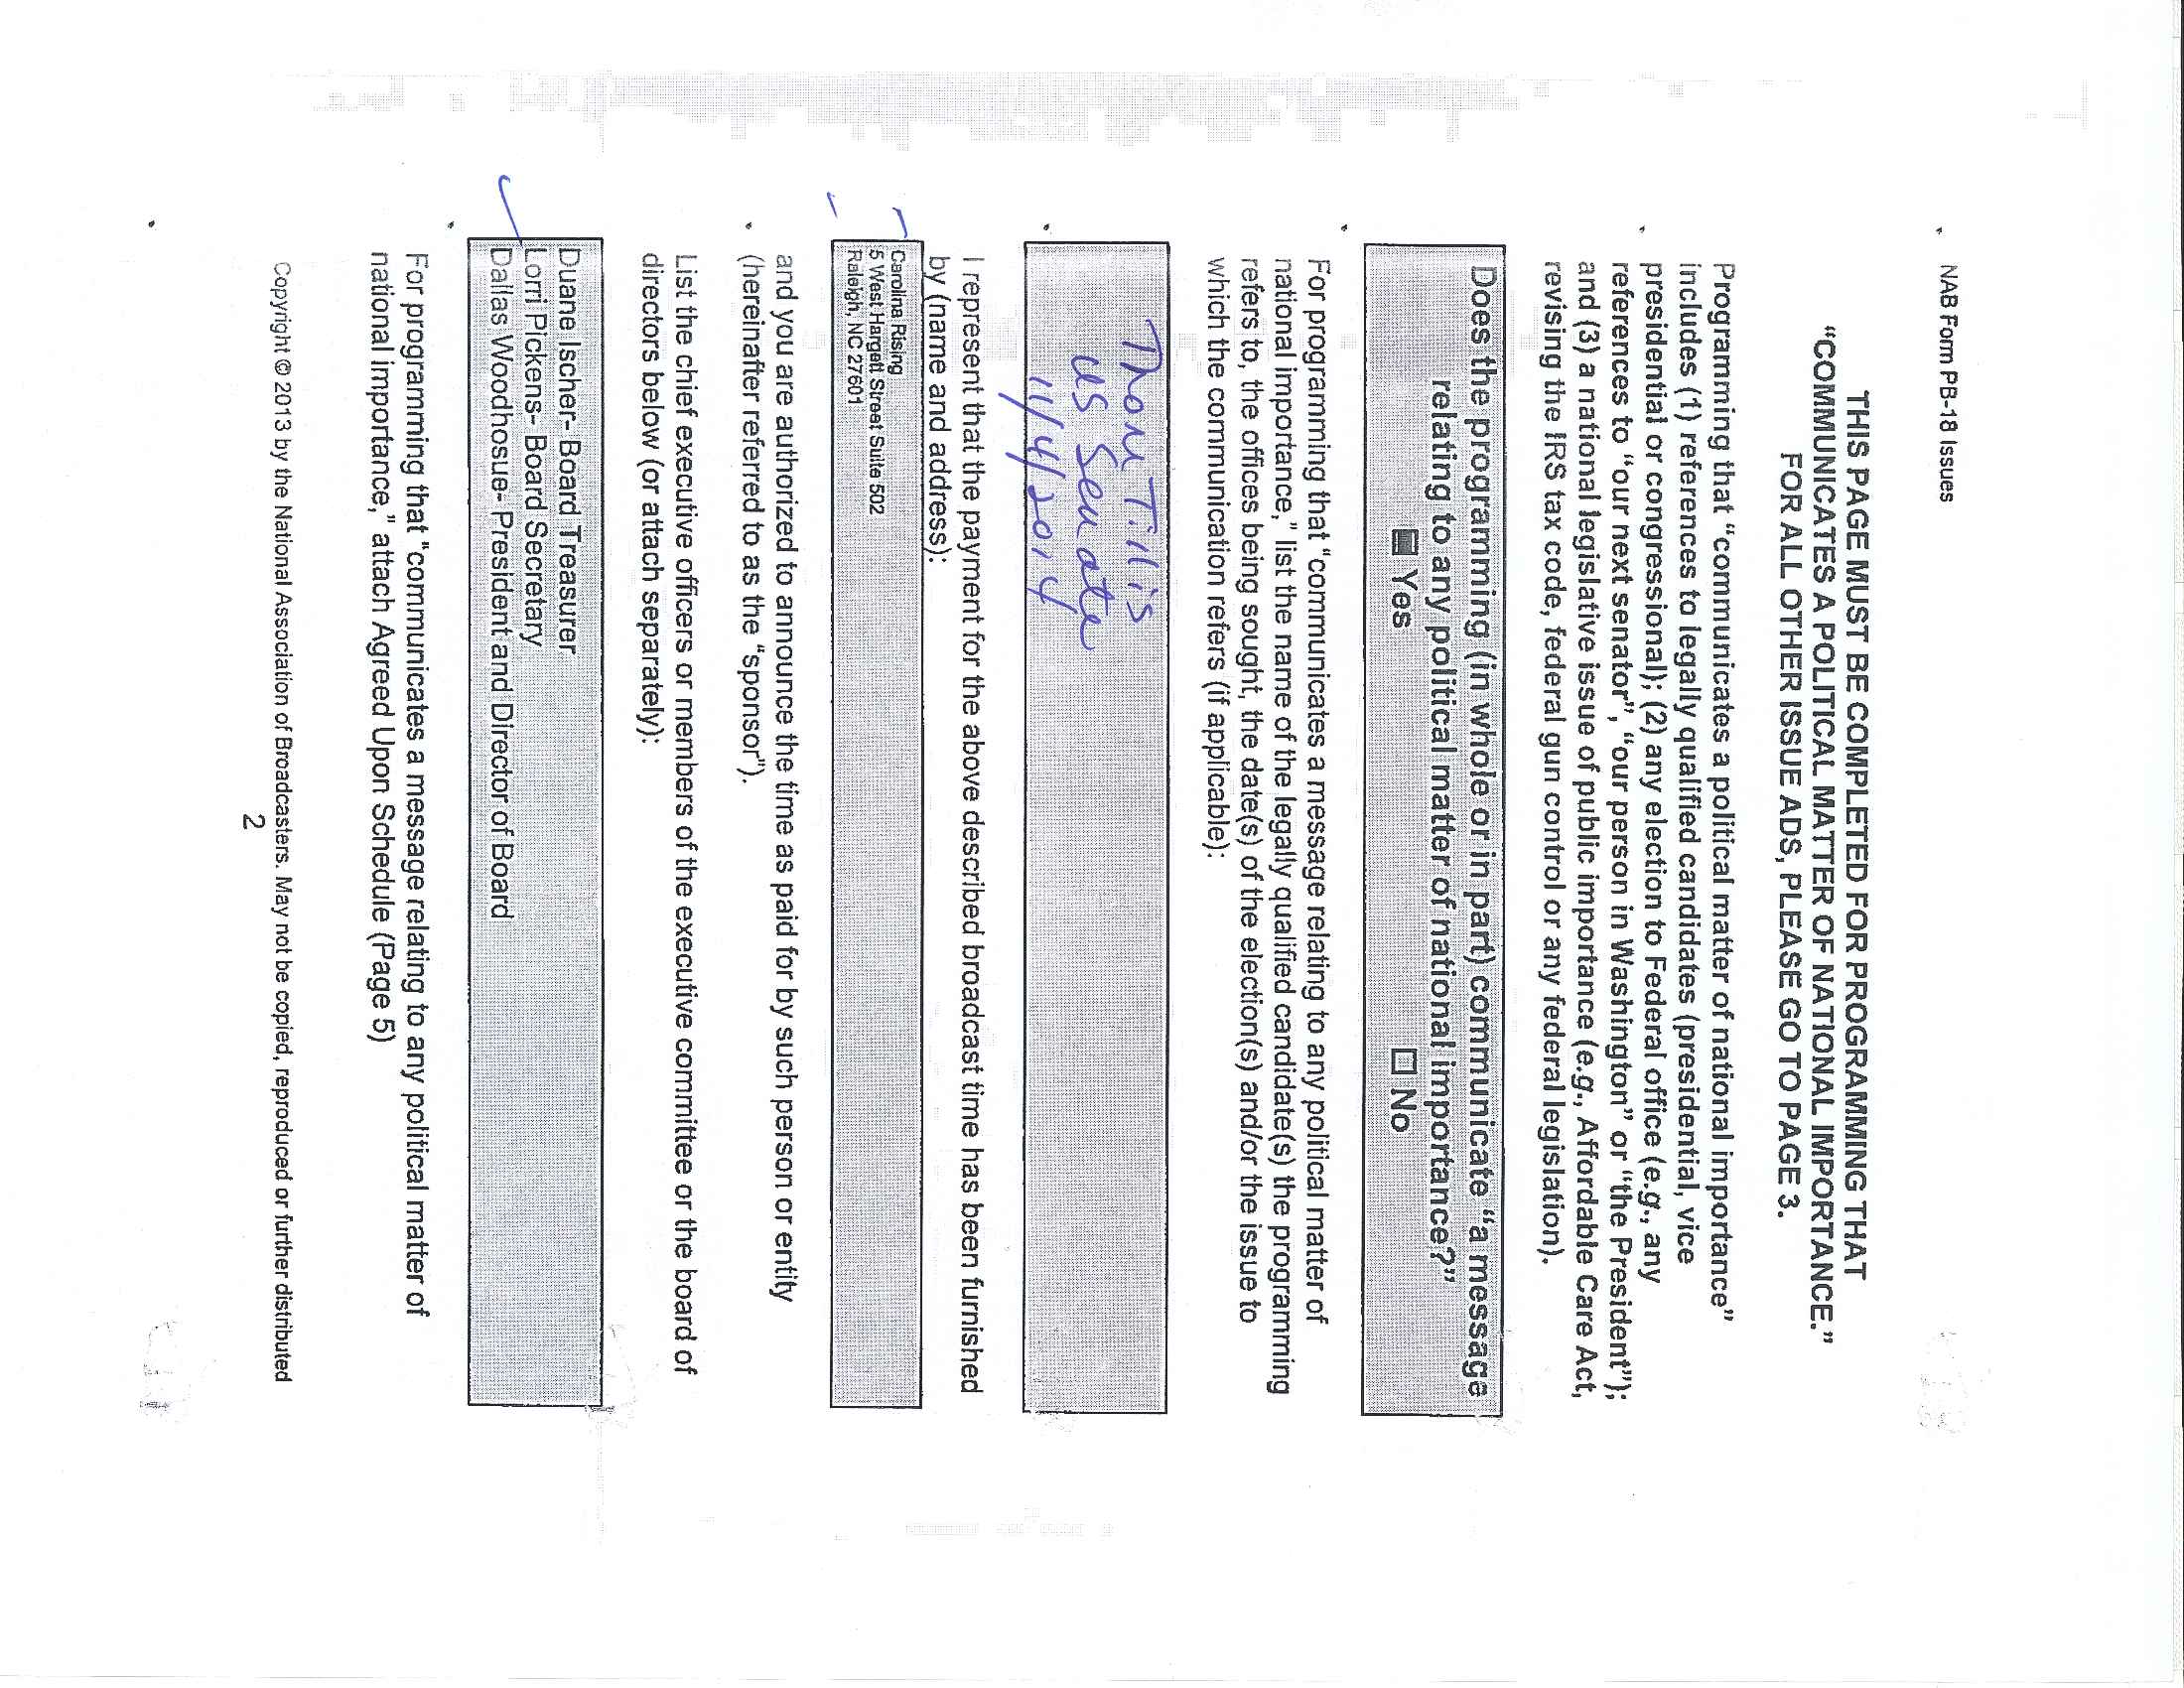 NAB Form PB-18 Issues
THIS PAGE MUST BE COMPLETED FOR PROGRAMMING THAT
“COMMUNICATES A POLITICAL MATTER OF NATIONAL IMPORTANCE.”
FOR ALL OTHER ISSUE ADS, PLEASE GO TO PAGE 3.
Programming that “communicates a political matter of national importance”
includes (1) references to legally qualified candidates (presidential, vice
presidential or congressional); (2) any election to Federal office (e.g., any
references to “our next senator”, “our person in Washington” or “the President”);
and (3) a national legislative issue of public importance (e.g., Affordable Care Act,
revising the IRS tax code, federal gun control or any federal legislation).
Does the programming (in whole or in part) communicate “a message
relating to any political matter of national importance?”
Yes No
For programming that “communicates a message relating to any political matter of
national importance,” list the name of the legally qualified candidate(s) the programming
refers to, the offices being sought, the date(s) of the election(s) and/or the issue to
which the communication refers (if applicable):
Thom Tillis
US Senate
11/4/2014
I represent that the payment for the above described broadcast time has been furnished
by (name and address):
Carolina Rising
5 West Hargett Street Suite 502
Raleigh, NC 27601
and you are authorized to announce the time as paid for by such person or entity
(hereinafter referred to as the “sponsor”).
List the chief executive officers or members of the executive committee or the board of
directors below (or attach separately):
Duane Ischer- Board Treasurer
Lorri Pickens- Board Secretary
Dallas Woodhosue- President and Director of Board
For programming that “communicates a message relating to any political matter of
national importance,” attach Agreed Upon Schedule (Page 5)
Copyright © 2013 by the National Association of Broadcasters. May not be copied, reproduced or further distributed
2